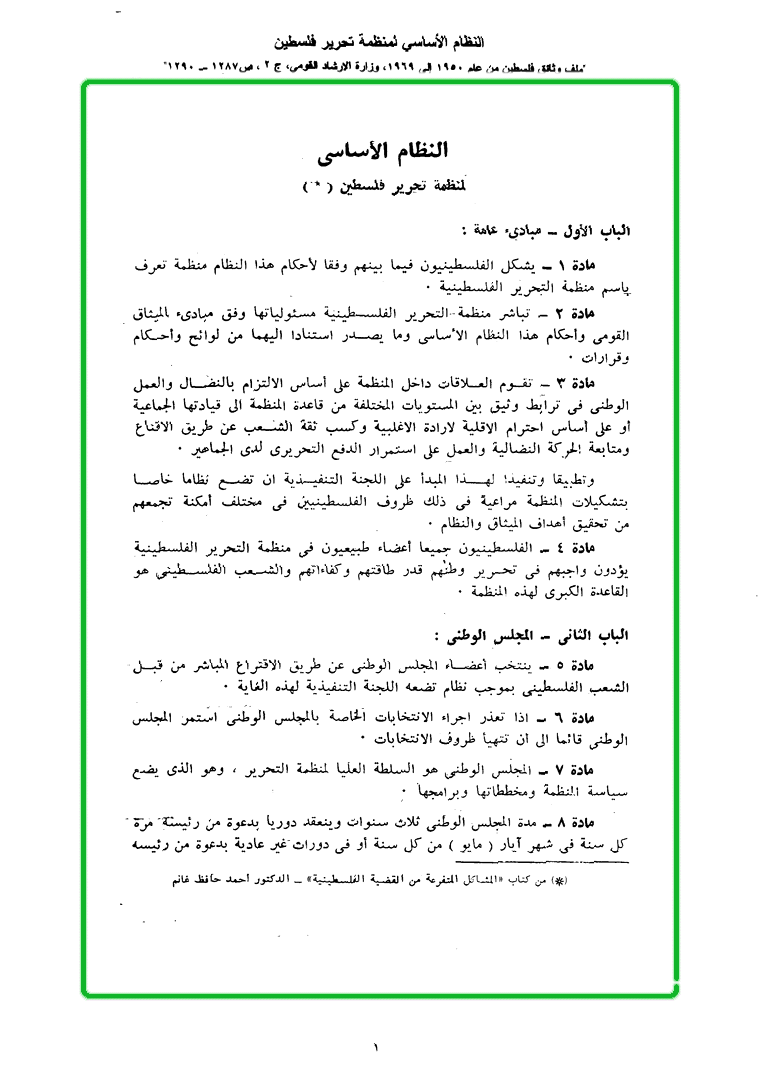 النظام الأساسي لمنظمة تحرير فلسطين
"ملف وثائق فلسطين من عام ١٩٥٠ إلى ١٩٦٩، وزارة الارشاد القومى، ج ٢ ، ص ١٢٨٧ – ١٢٩٠"
النظام الأساسى
لمنظمة تحرير فلسطين ( * )
الباب الأول – مبادىء عامة :
مادة ١ – يشكل الفلسطينيون فيما بينهم وفقا لأحكام هذا النظام منظمة تعرف
باسم منظمة التحرير الفلسطينية .
مادة ٢ – تباشر منظمة التحرير الفلسطينية مسئولياتها وفق مبادىء الميثاق
القومى وأحكام هذا النظام الأساسى وما يصدر استنادا اليهما من لوائح وأحكام
وقرارات .
مادة ٣ – تقوم العلاقات داخل المنظمة على أساس الالتزام بالنضال والعمل
الوطنى فى ترابط وثيق بين المستويات المختلفة من قاعدة المنظمة الى قيادتها الجماعية
أو على أساس احترام الاقلية لارادة الاغلبية وكسب ثقة الشعب عن طريق الاقناع
ومتابعة الحركة النضالية والعمل على استمرار الدفع التحريرى لدى الجماهير .
وتطبيقا وتنفيذا لهذا المبدأ على اللجنة التنفيذية ان تضع نظاما خاصا
بتشكيلات المنظمة مراعية فى ذلك ظروف الفلسطينيين فى مختلف أمكنة تجمعهم
من تحقيق أهداف الميثاق والنظام .
مادة ٤ – الفلسطينيون جميعا أعضاء طبيعيون فى منظمة التحرير الفلسطينية
يؤدون واجبهم فى تحرير وطنهم قدر طاقتهم وكفاءاتهم والشعب الفلسطينى هو
القاعدة الكبرى لهذه المنظمة .
الباب الثانى – المجلس الوطنى :
مادة ٥ – ينتخب أعضاء المجلس الوطنى عن طريق الاقتراع المباشر من قبل
الشعب الفلسطينى بموجب نظام تضعه اللجنة التنفيذية لهذه الغاية .
مادة ٦ – اذا تعذر اجراء الانتخابات الخاصة بالمجلس الوطنى استمر المجلس
الوطنى قائما الى ان تتهيأ ظروف الانتخابات .
مادة ٧ – المجلس الوطنى هو السلطة العليا لمنظمة التحرير ، وهو الذى يضع
سياسة النظمة ومخططاتها وبرامجها .
مادة ٨ – مدة المجلس الوطنى ثلاث سنوات وينعقد دوريا بدعوة من رئيسه مرة
كل سنة فى شهر آيار ( مايو ) من كل سنة أو فى دورات غير عادية بدعوة من رئيسه
(*) من كتاب «المشاكل المتفرعة من القضية الفلسطينية» – الدكتور أحمد حافظ غانم
١